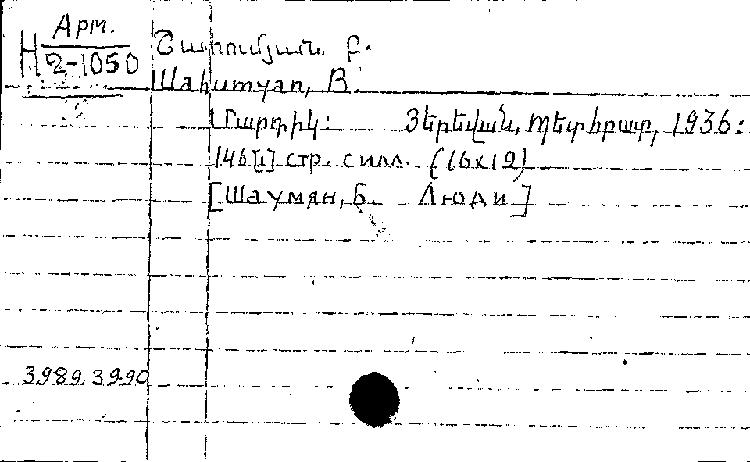 Арм.
Н 2-1050
Շահումյան Բ.
Шаhumyan, B.
Մարդիկ: Յերեվան, Պետհրատ, 1936:
146[ն] стр. с илл. (16x12)
[Шаумян, Б. Люди]
3989, 3990